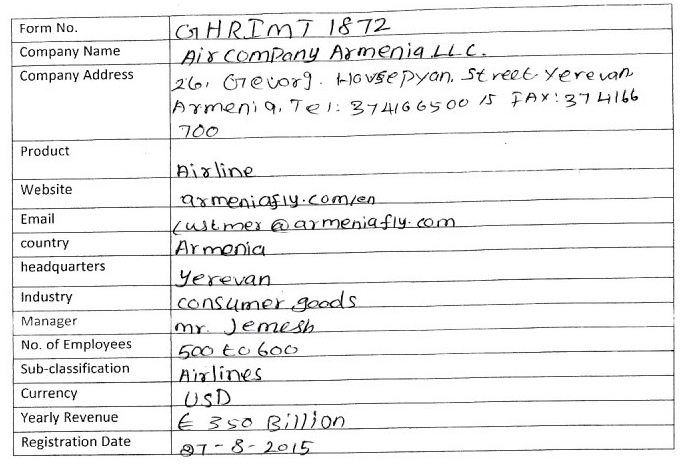 Form No. GHRIMT 1872
Company Name Air company Armenia LLC.
Company Address 26, Gevorg. Hovsepyan, Street Yerevan
Armenia, Tel: 374166500 15 FAX: 374166
700
Product Airline
Website armeniafly.com/en
Email custmer@armeniafly.com
country Armenia
headquarters Yerevan
Industry consumer goods
Manager mr. Jemesh
No. of Employees 500 to 600
Sub-classification Airlines
Currency USD
Yearly Revenue € 350 Billion
Registration Date 27-8-2015